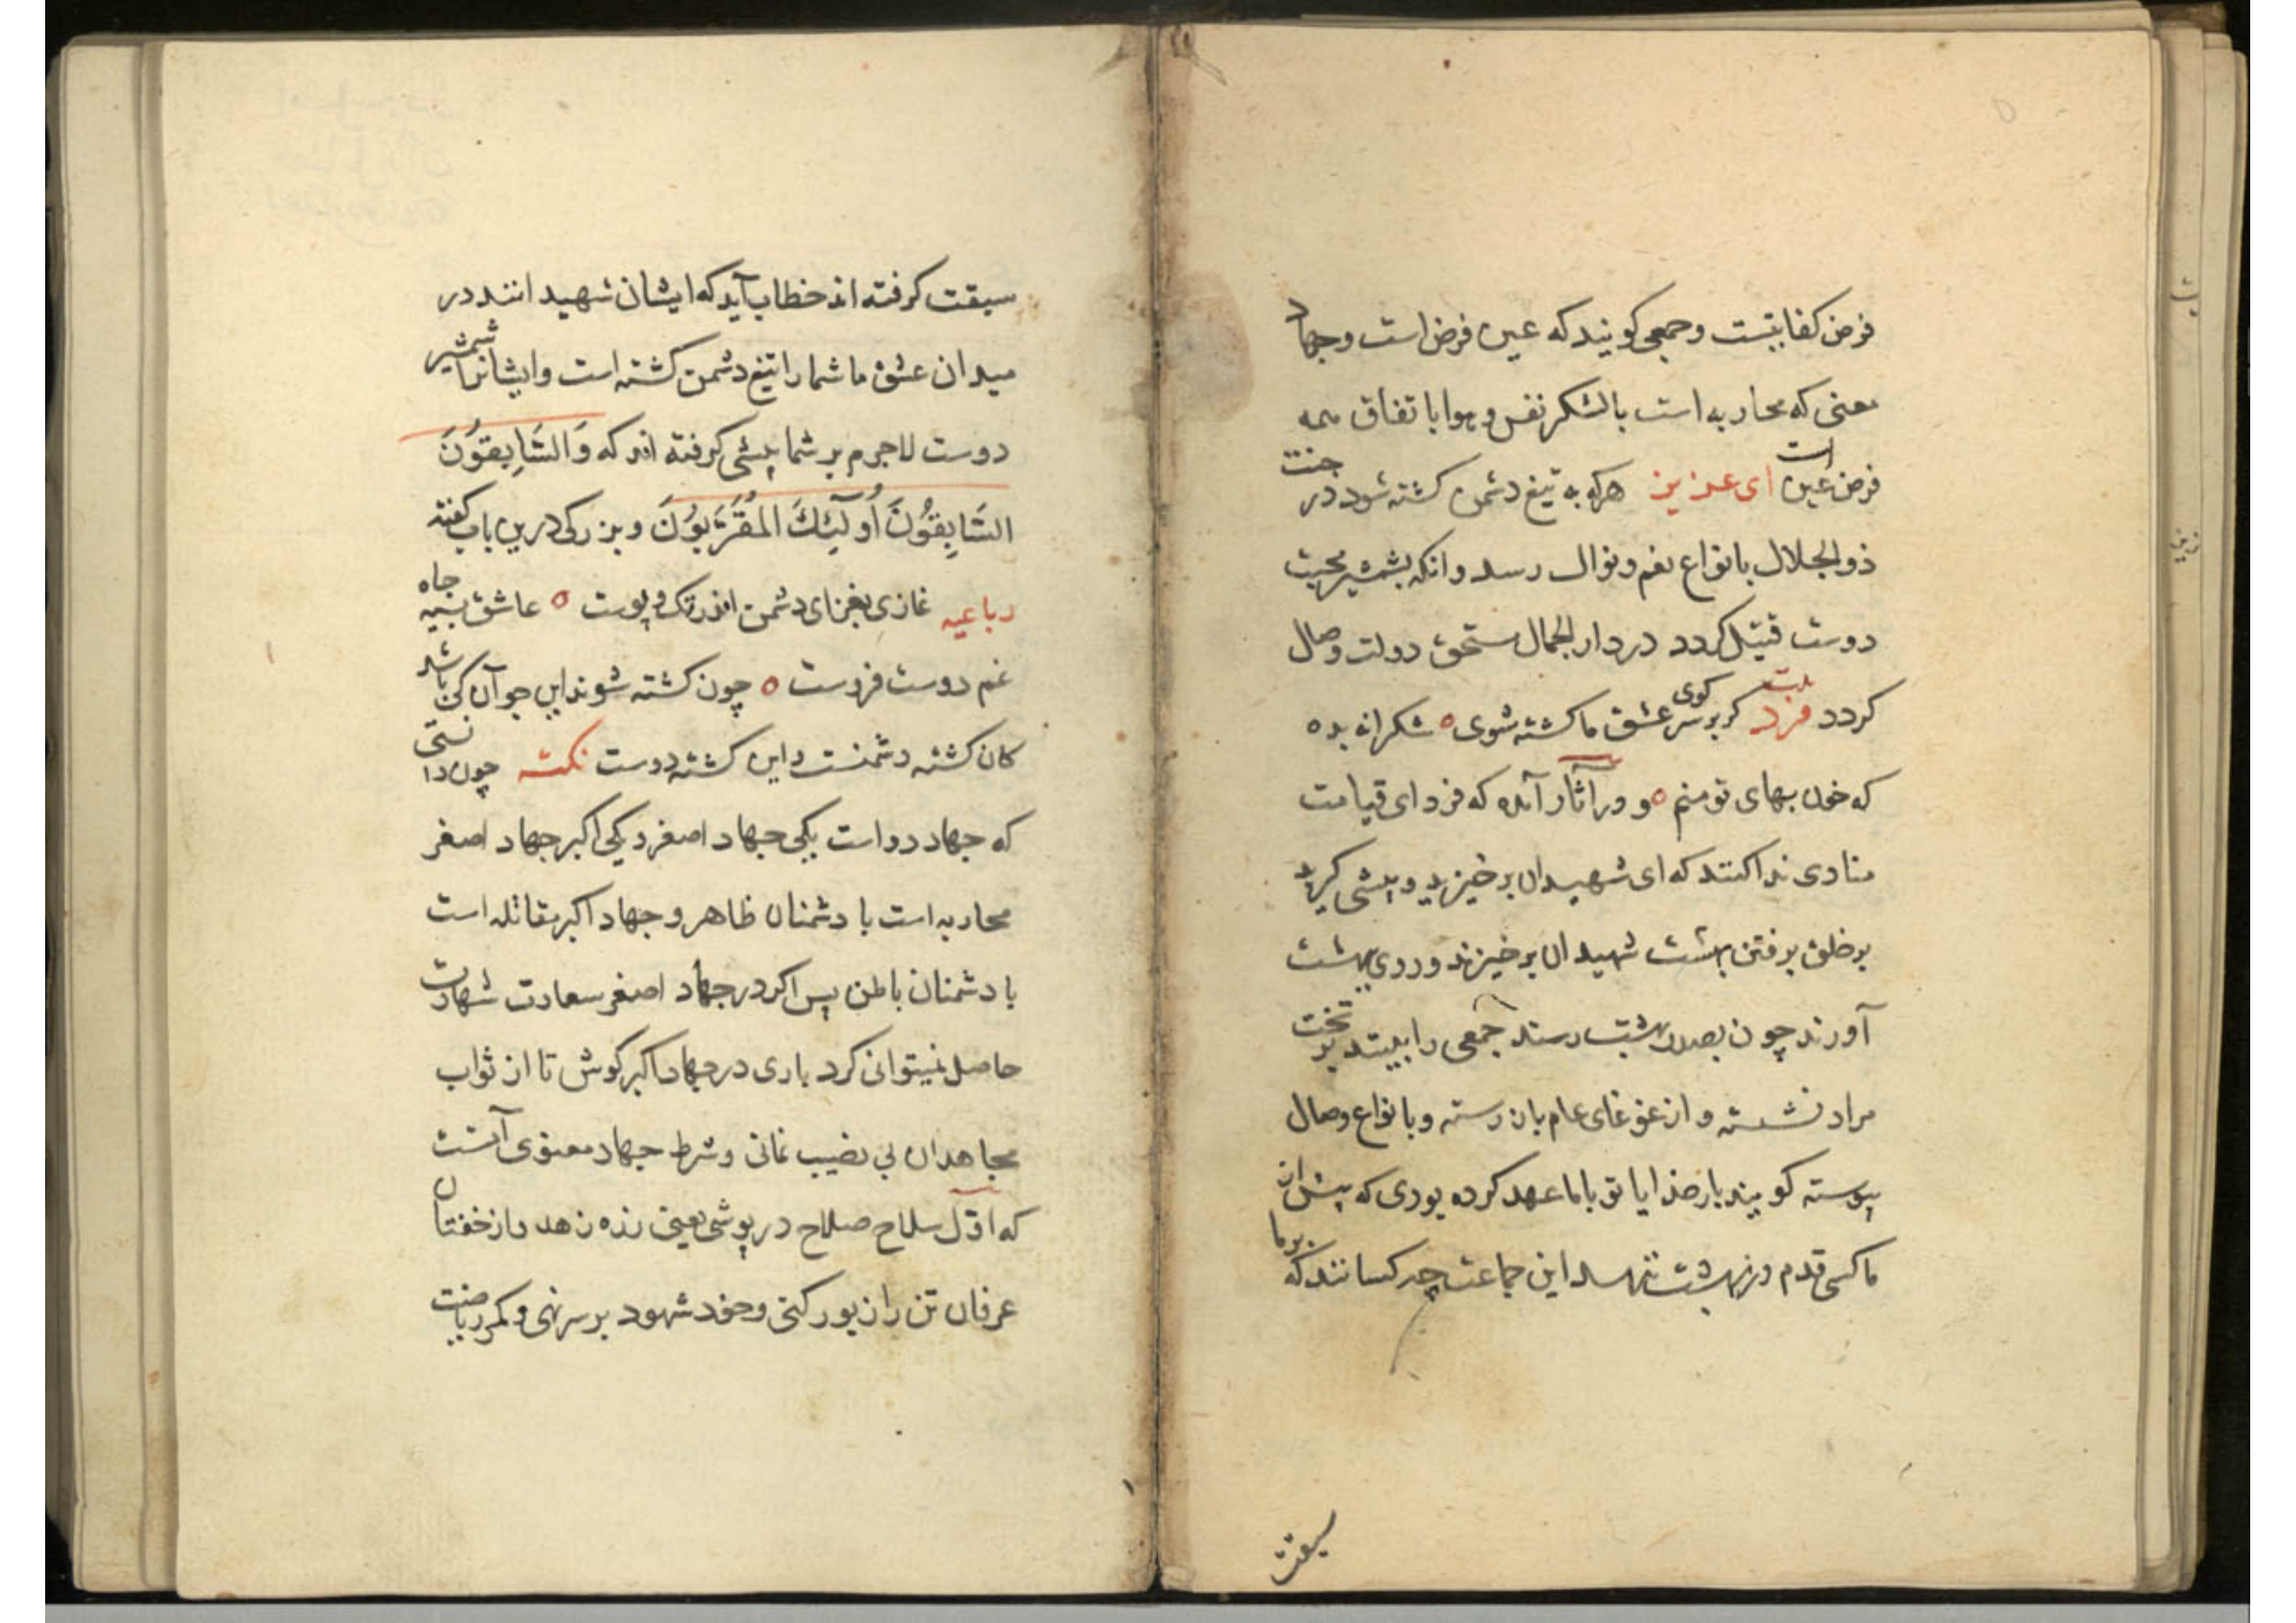 فرض کفایتست و جمعی کویند که عین فرض است و جهاد
معنی که محاربه است بالشکر نفس و هوا باتفاق همه
فرض عین است ای عزیز هرکه به تیغ دشمن کشته شود در جنت
ذو الجلال بانواع نعم و نوال رسد و انکه بشمشیر محبت
دوست قتیل کردد در دار الجمال مستحق دولت وصال
کردد فرد بیت کر بر سر کوی عشق ما کشته شوی ه شکرانه بده
که خون بهای تو منم ه و در آثار آمده که فردای قیامت
منادی ندا کند که ای شهیدان برخیزید و پیشی کیرید
بر خلق برفتن بهشت شهیدان برخیزند و روی ببهشت
آورند چون بصدر بهشت رسند جمعی را بینند بر تخت
مراد نشسته و از غوغای عام باز رسته و بانواع وصال
پیوسته کویند بار خدایا تو باما عهد کرده بودی که پیش از
ما کسی قدم در بهشت ننهد این جماعت چه کسانند که بر ما
سبقت
سبقت کرفته اند خطاب آید که ایشان شهید انند در
میدان عشق ما شما را تیغ دشمن کشته است و ایشانرا شمشیر
دوست لاجرم بر شما پیشی کرفته اند که وَالسَّابِقُونَ
السَّابِقُونَ أُولَٓئِكَ الْمُقَرَّبُونَ و بزرکی درین باب کفته
رباعیه غازی بغزای دشمن اندر تک و پوست ه عاشق بسیه جاه
غم دوست فروست ه چون کشته شوند این چو آن کی باشد
کان کشته دشمنست و این کشته دوست نکته چون دانستی
که جهاد دو است یکی جهاد اصغر و یکی اکبر جهاد اصغر
محاربه است با دشمنان ظاهر و جهاد اکبر مقاتله است
با دشمنان باطن پس اکر در جهاد اصغر سعادت شهادت
حاصل نمیتوانی کرد باری در جهاد اکبر کوش تا از ثواب
مجاهدان بی نصیب نمانی و شرط جهاد معنوی آنست
که اوّل سلاح صلاح در پوشی یعنی زره زهد و از خفتان
عرفان تن را زیور کنی و خود شهود بر سر نهی و کمر ریاضت